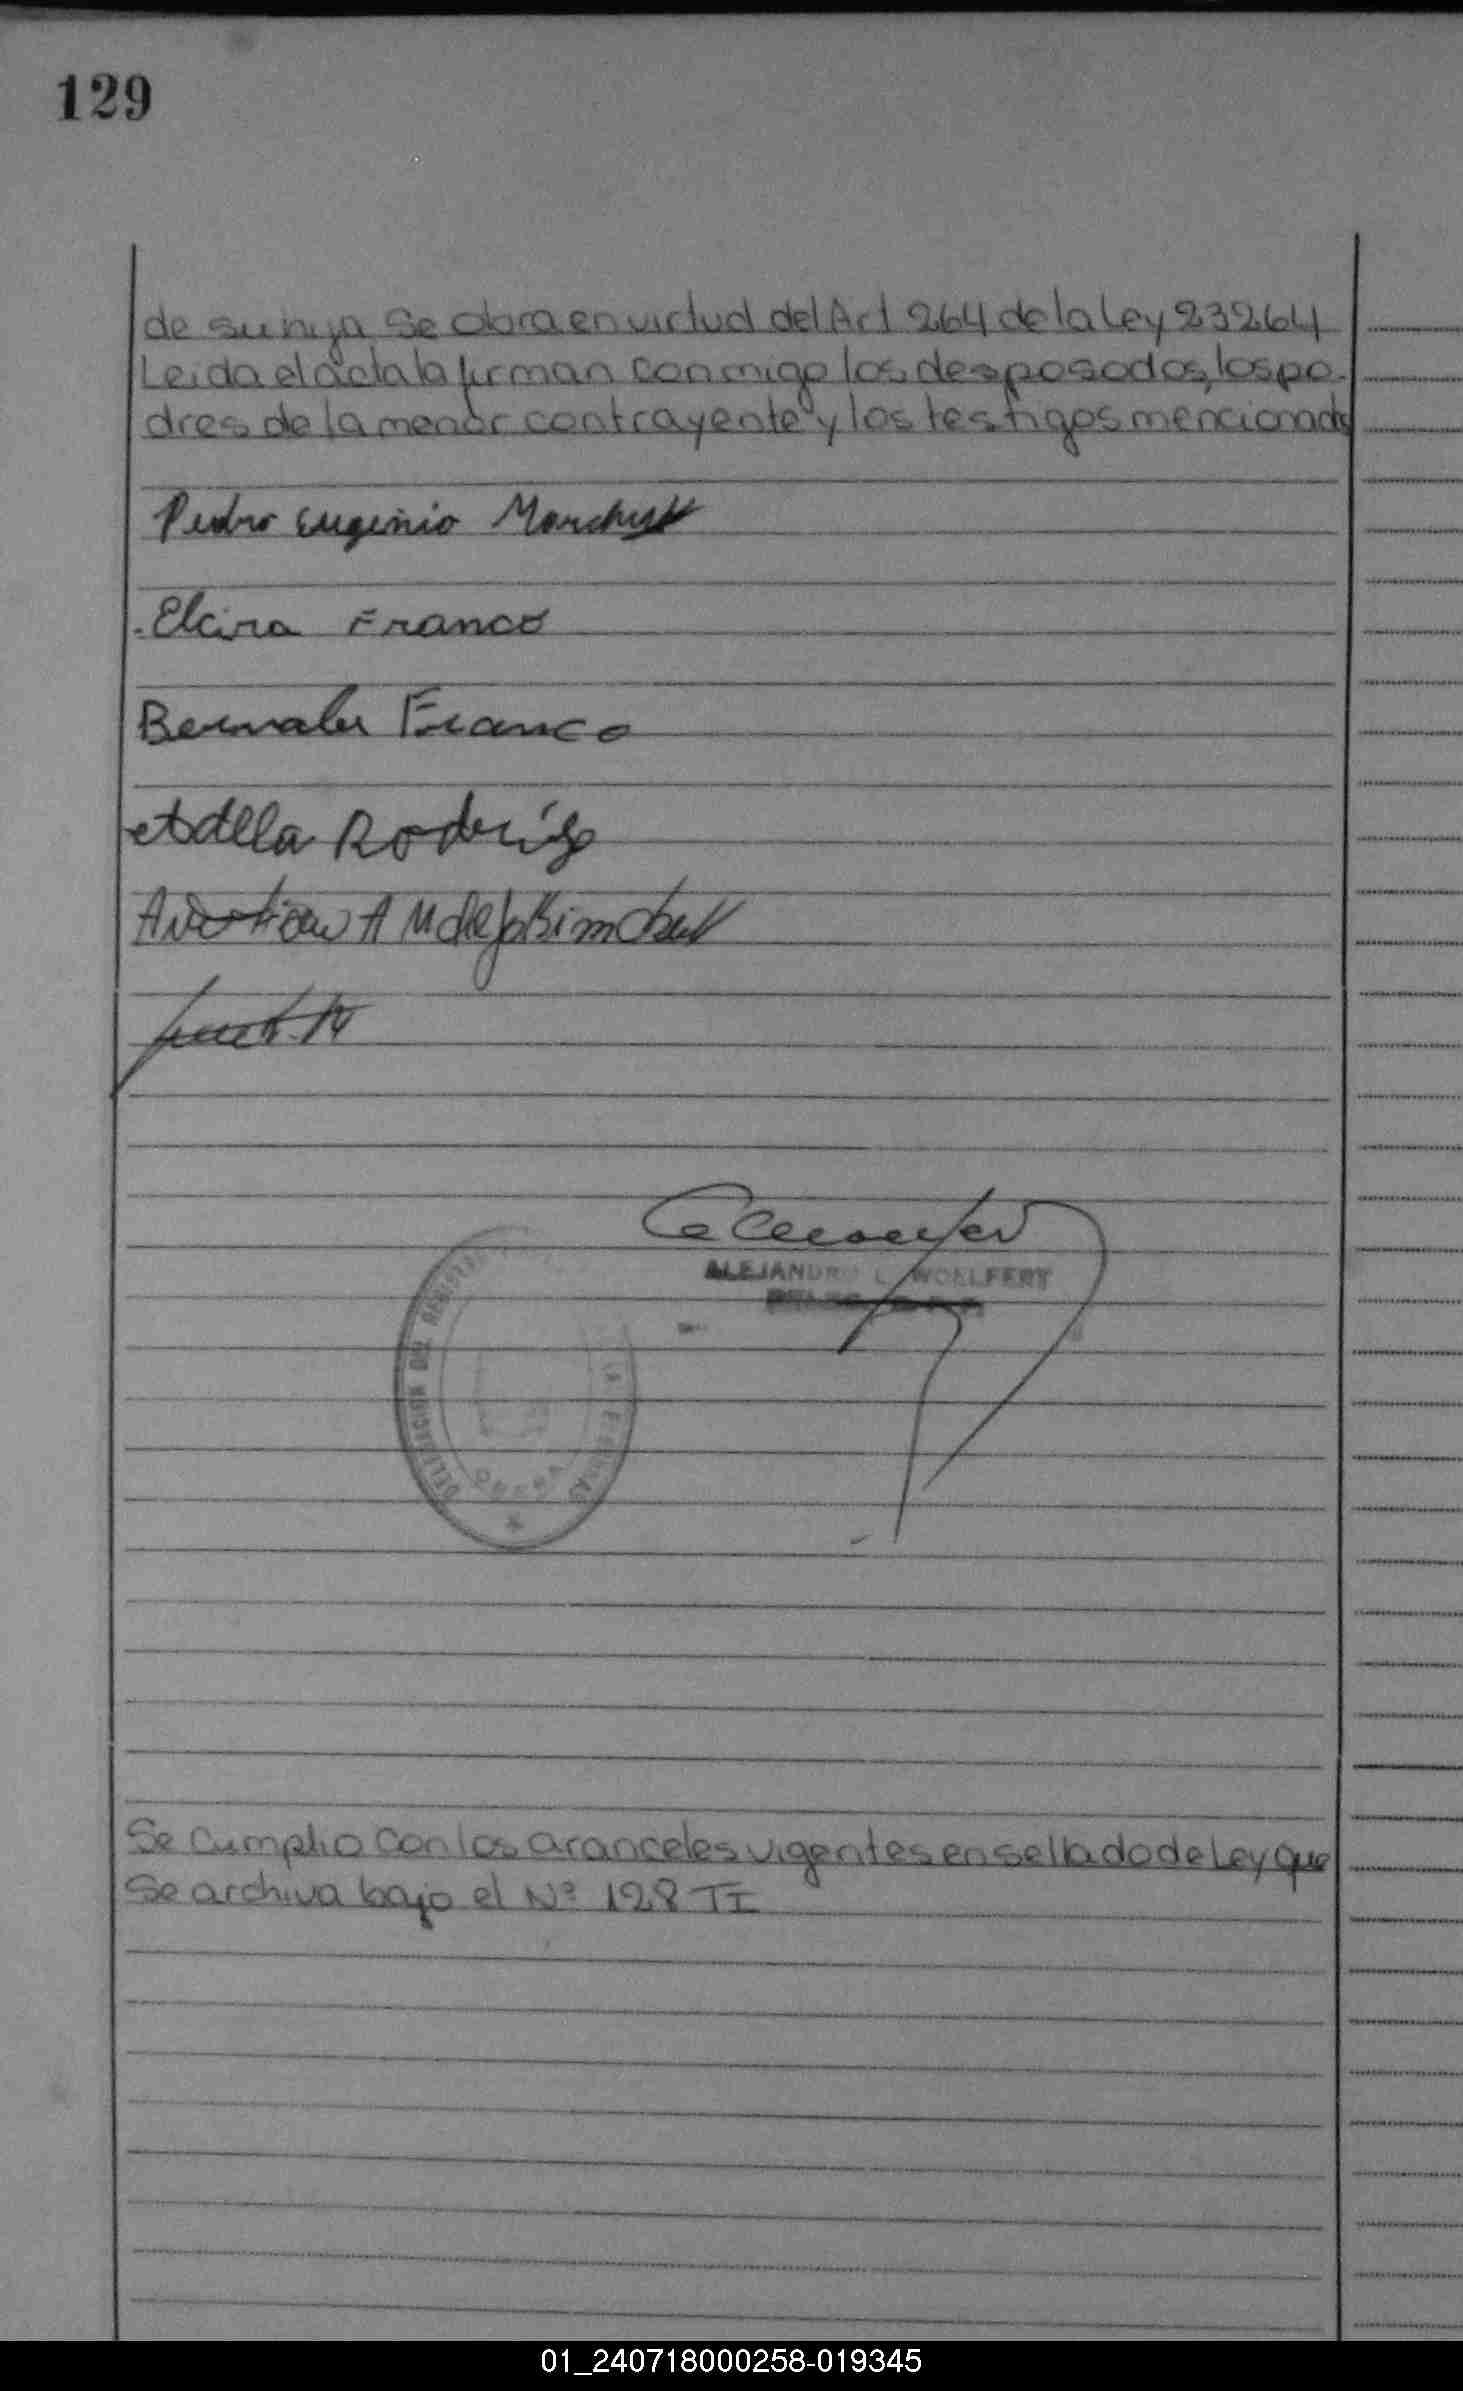 129
de su hija Se obra en virtud del Art 264 de la Ley 23264
Leida el acta la firman conmigo los desposados, los pa-
dres de la menor contrayente y los testigos mencionados
Pedro Eugenio
Elcira Franco
Bernabe Franco
Rodríg
ALEJANDRO L. WOELFERT
DELEGACION DEL REGISTR LA PERSONAS
OBERA
Se cumplio con los aranceles vigentes en sellado de Ley que
Se archiva bajo el Nº 128 TI
01_240718000258-019345